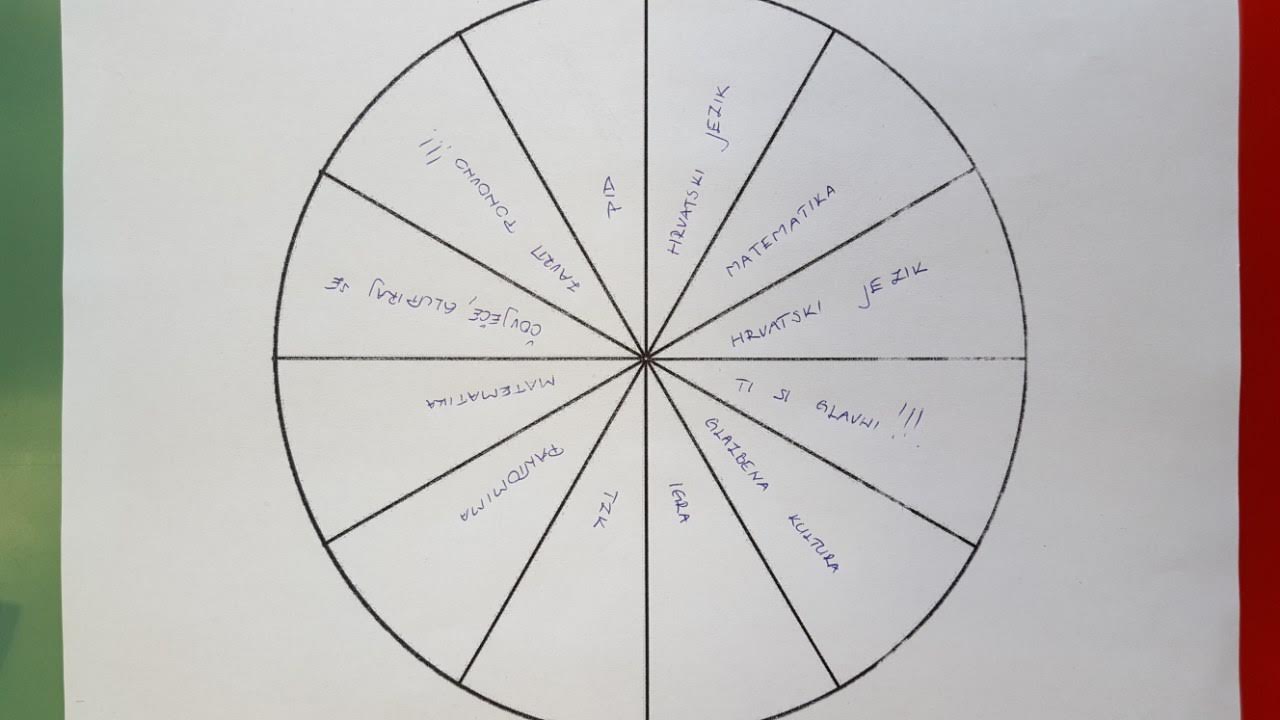 HRVATSKI JEZIK
MATEMATIKA
HRVATSKI JEZIK
TI SI GLAVNI !!!
GLAZBENA KULTURA
IGRA
TZK
PANTOMIMA
MATEMATIKA
ČOVJEČE, BLUFIRAJ SE
ZAVRTI PONOVNO !!!
PID